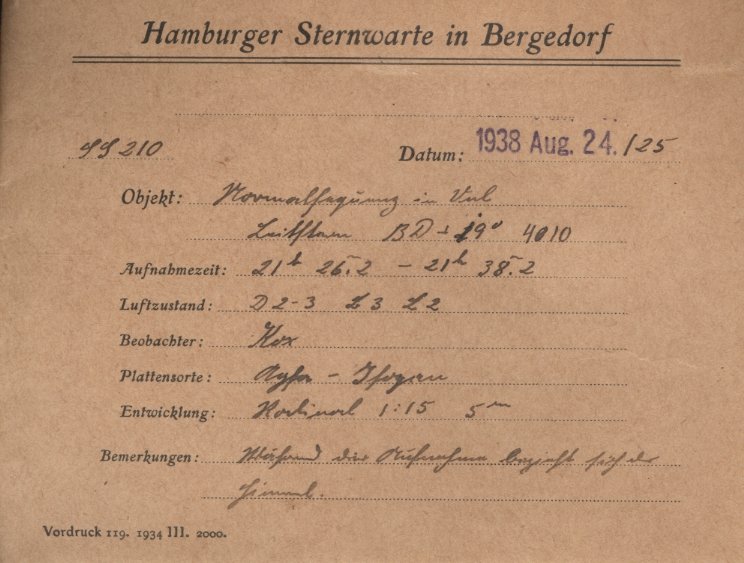 Hamburger Sternwarte in Bergedorf
SS 210
Datum: 1938 Aug. 24. /25
Objekt: in Vul
Leitstern BD + 19° 4010
Aufnahmezeit: 21h 26.2 – 21h 38.2
Luftzustand: D 2-3 Z 3 L 2
Beobachter: Kox
Plattensorte: Agfa – Isopan
Entwicklung: Rodinal 1:15 5m
Bemerkungen: Während der Aufnahme bezieht sich der
Himmel.
Vordruck 119. 1934 III. 2000.